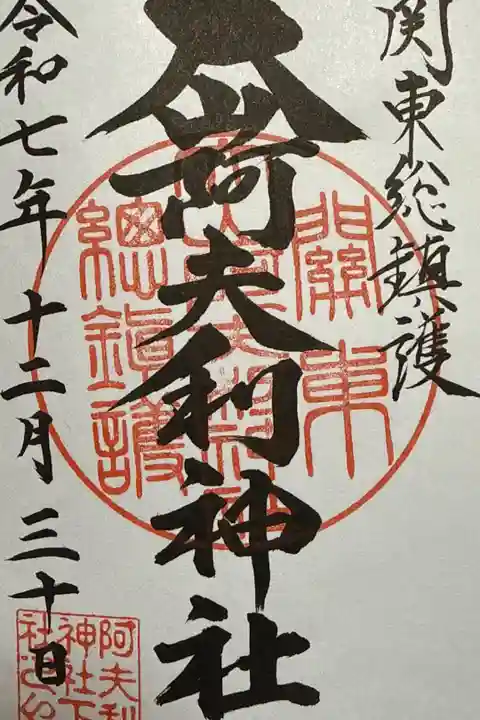 関東総鎮護
大山阿夫利神社
令和七年十二月三十日
關東
總鎭護
阿夫利
神社下
社